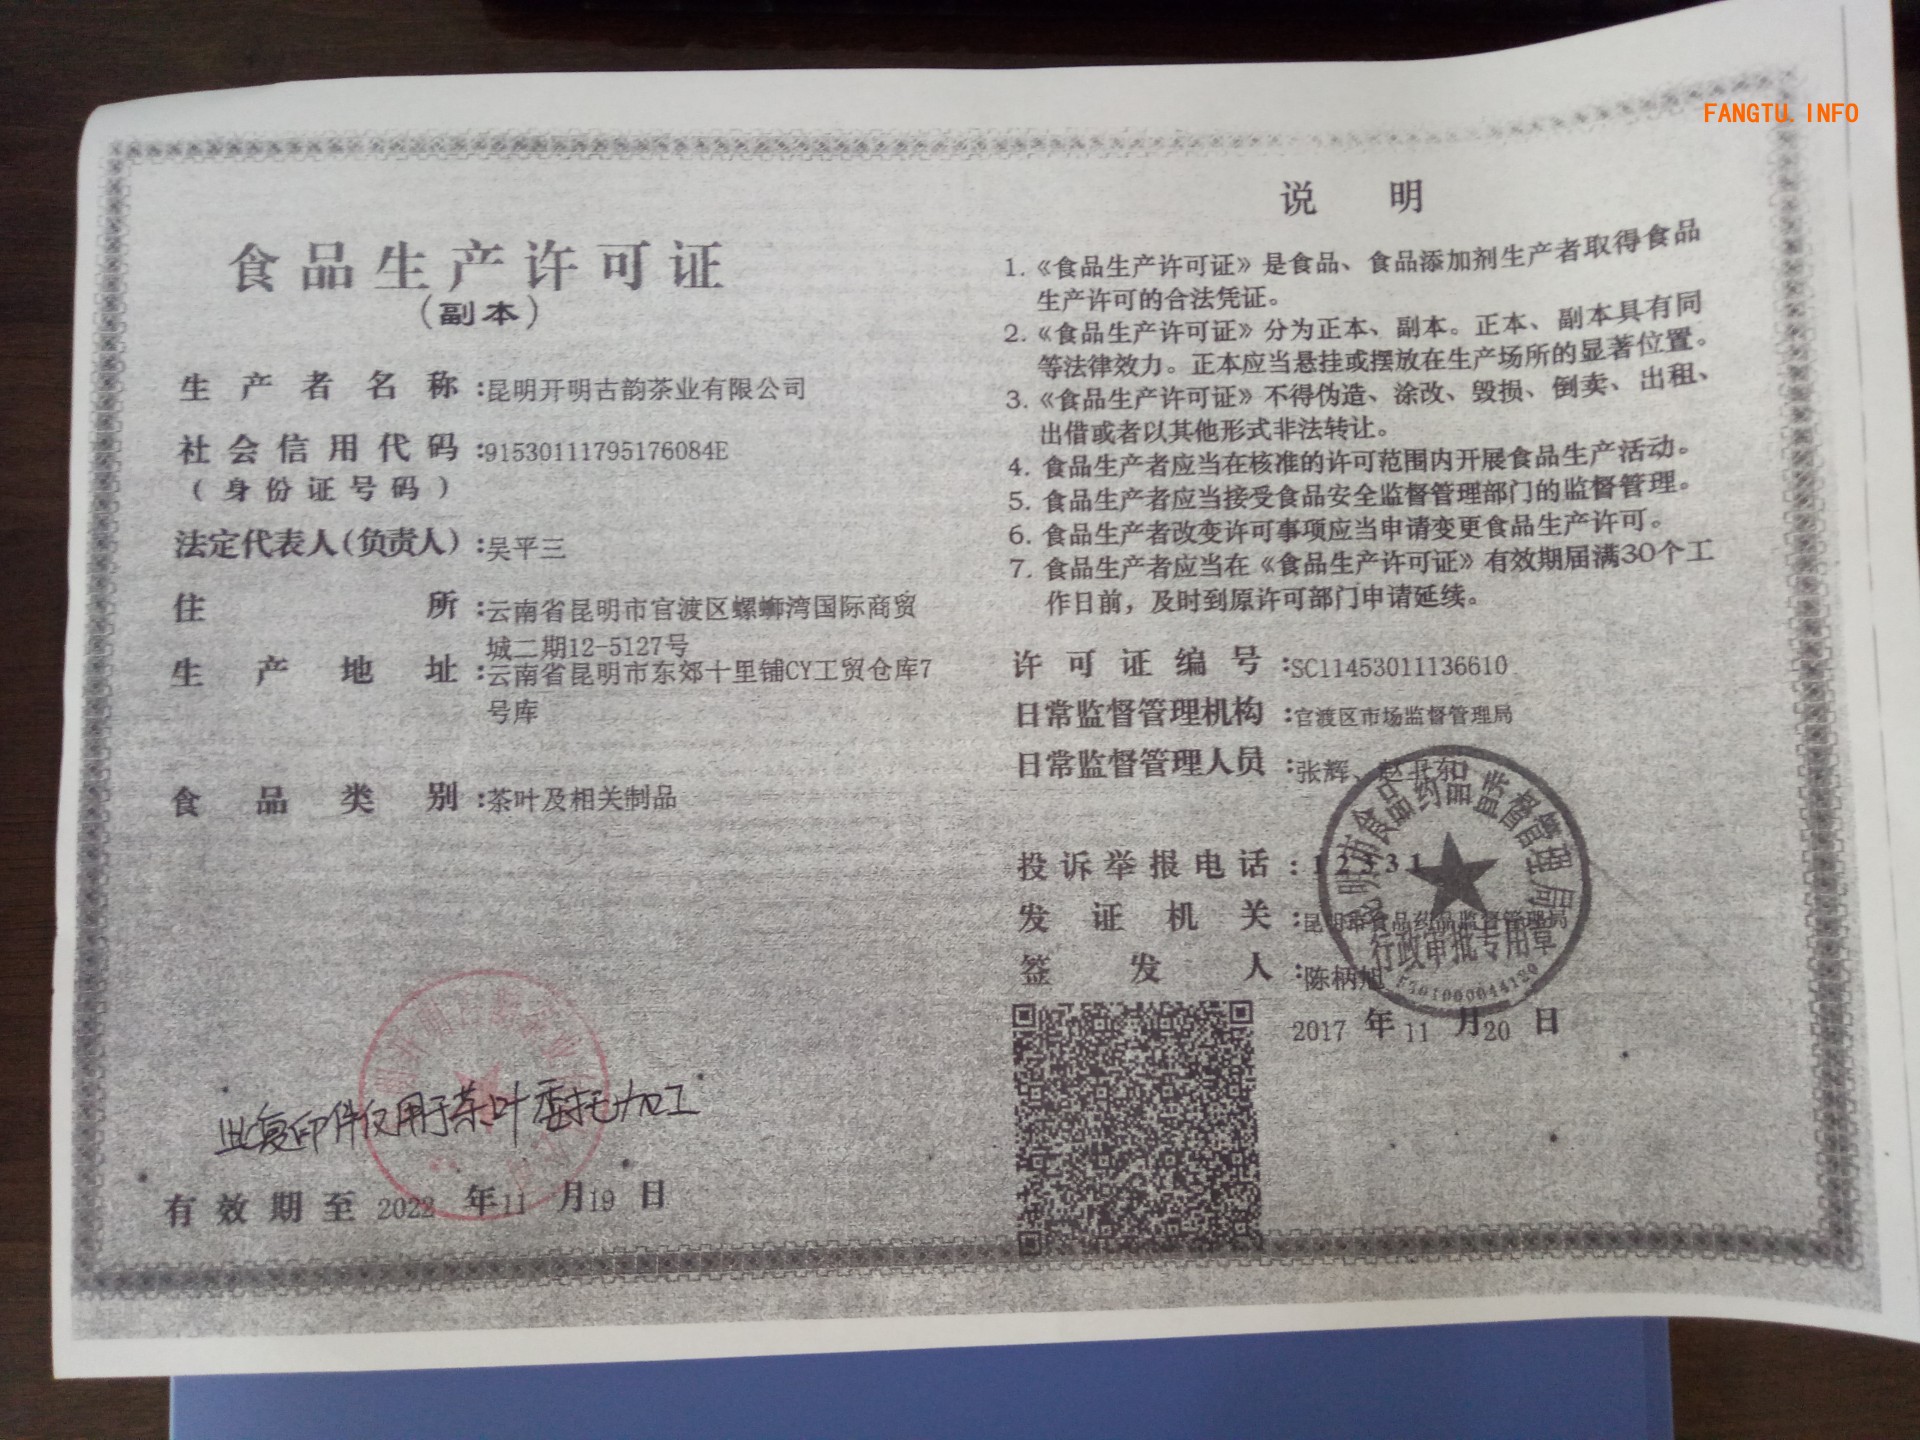 FANGTU.INFO
食品生产许可证
（副本）
生产者名称：昆明开明古韵茶业有限公司
社会信用代码：91530111795176084E
（身份证号码）
法定代表人（负责人）：吴平三
住所：云南省昆明市官渡区螺蛳湾国际商贸
城二期12-5127号
生产地址：云南省昆明市东郊十里铺CY工贸仓库7
号库
食品类别：茶叶及相关制品
此复印件仅用于茶叶委托加工
有效期至 2022 年 11 月 19 日
说明
1. 《食品生产许可证》是食品、食品添加剂生产者取得食品
生产许可的合法凭证。
2. 《食品生产许可证》分为正本、副本。正本、副本具有同
等法律效力。正本应当悬挂或摆放在生产场所的显著位置。
3. 《食品生产许可证》不得伪造、涂改、毁损、倒卖、出租、
出借或者以其他形式非法转让。
4. 食品生产者应当在核准的许可范围内开展食品生产活动。
5. 食品生产者应当接受食品安全监督管理部门的监督管理。
6. 食品生产者改变许可事项应当申请变更食品生产许可。
7. 食品生产者应当在《食品生产许可证》有效期届满30个工
作日前，及时到原许可部门申请延续。
许可证编号：SC11453011136610
日常监督管理机构：官渡区市场监督管理局
日常监督管理人员：张辉、赵北东
投诉举报电话：12331
发证机关：昆明市食品药品监督管理局
签发人：陈柄旭
2017 年 11 月 20 日
昆明市食品药品监督管理局
行政审批专用章